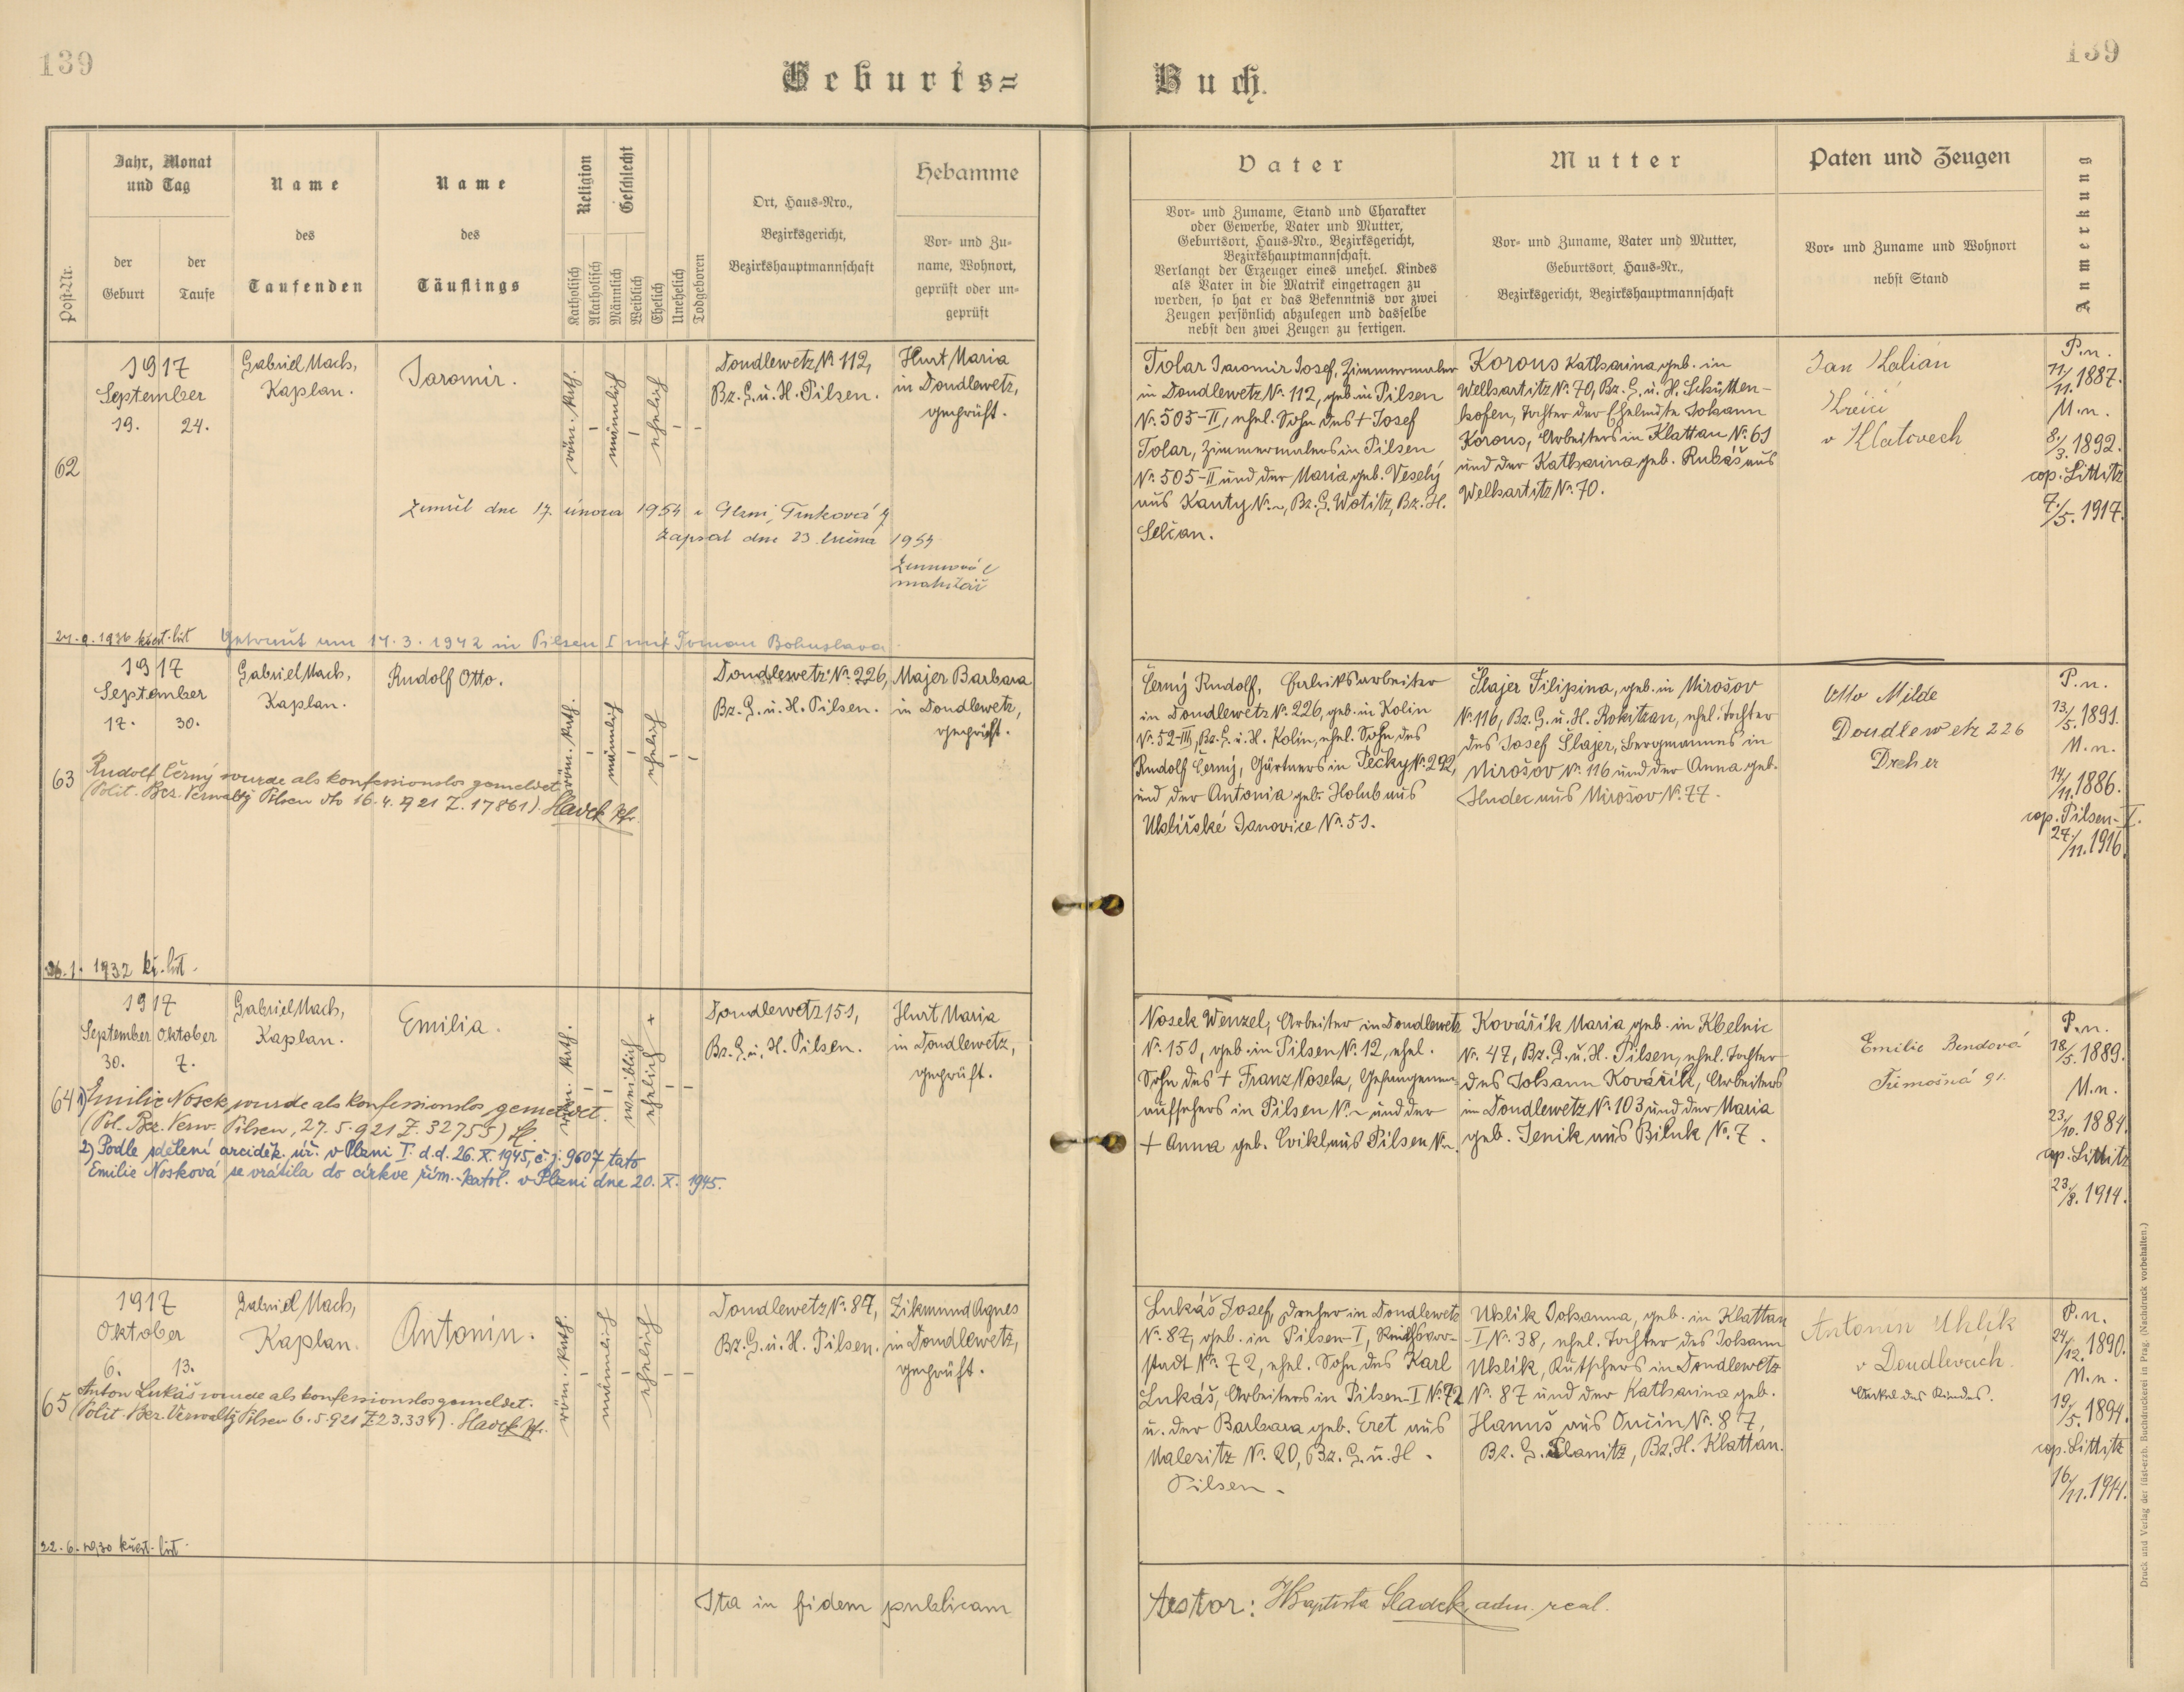 139
139
Geburts=
Buch.
Post-Nr.
Jahr, Monat
und Tag
der
Geburt
der
Taufe
Name
des
Taufenden
Name
des
Täuflings
Religion
Katholisch
Akatholisch
Geschlecht
Männlich
Weiblich
Ehelich
Unehelich
Todgeboren
Ort, Haus=Nro.,
Bezirksgericht,
Bezirkshauptmannschaft
Hebamme
Vor= und Zu=
name, Wohnort,
geprüft oder un=
geprüft
Vater
Vor= und Zuname, Stand und Charakter
oder Gewerbe, Vater und Mutter,
Geburtsort, Haus=Nro., Bezirksgericht,
Bezirkshauptmannschaft.
Verlangt der Erzeuger eines unehel. Kindes
als Vater in die Matrik eingetragen zu
werden, so hat er das Bekenntnis vor zwei
Zeugen persönlich abzulegen und dasselbe
nebst den zwei Zeugen zu fertigen.
Mutter
Vor= und Zuname, Vater und Mutter,
Geburtsort, Haus=Nr.,
Bezirksgericht, Bezirkshauptmannschaft
Paten und Zeugen
Vor= und Zuname und Wohnort
nebst Stand
Anmerkung
62
1917
September
19. 24.
Gabriel Mach,
Kaplan.
Jaromir.
röm. kath.
männlich
ehelich
Doudlewetz № 112,
Bz. G. u. H. Pilsen.
Hurt Maria
in Doudlewetz,
geprüft.
Tolar Jaromir Josef, Zimmermaler
in Doudlewetz № 112, geb. in Pilsen
№ 505-II, ehel. Sohn des + Josef
Tolar, Zimmermalers in Pilsen
№ 505-II und der Maria geb. Veselý
aus Kanty № ~, Bz. G. Wotitz, Bz. H.
Selčan.
Korous Katharina geb. in
Welhartitz № 70, Bz. G. u. H. Schütten-
hofen, Tochter der Eheleute Johann
Korous, Arbeiters in Klattau № 61
und der Katharina geb. Rubáš aus
Welhartitz № 70.
Jan
v Klatovech
P. n.
11/11. 1887.
M. n.
8./3. 1892.
cop. Littitz
7./5. 1917.
Zemřel dne 17. února 1954 v Plzni,
Zapsal dne 23. 1954
matrikář
24. 9. 1936 křest. list
Getraut am 14. 3. 1942 in Pilsen I mit Toman Bohuslava
63
1917
September
17. 30.
Gabriel Mach,
Kaplan.
Rudolf Otto.
röm. kath.
männlich
ehelich
Doudlewetz № 226,
Bz. G. u. H. Pilsen.
Majer Barbara
in Doudlewetz,
geprüft.
Černý Rudolf, Fabriksarbeiter
in Doudlewetz № 226, geb. in Kolin
№ 52-III, Bz. G. u. H. Kolin, ehel. Sohn des
Rudolf Černý, Gärtners in Pečky № 292,
und der Antonia geb. Holub aus
Uhlířské Janovice № 51.
Šlajer Filipina, geb. in Mirošov
№ 116, Bz. G. u. H. Rokitzan, ehel. Tochter
des Josef Šlajer, Bergmannes in
Mirošov № 116 und der Anna geb.
Hudec aus Mirošov № 77.
Otto Milde
Doudlewetz 226
Dreher
P. n.
13./5. 1891.
M. n.
14/11. 1886.
cop. Pilsen-I.
27./11. 1916.
Rudolf Černý wurde als konfessionslos gemeldet
(Polit. Bez. Verwaltg Pilsen dto 16. 4. 921 Z. 17861) Sladek Pfr.
26. 1. 1932 kř. list.
64
1917
September Oktober
30. 7.
Gabriel Mach,
Kaplan.
Emilia.
röm. kath.
weiblich
ehelich +
Doudlewetz 151,
Bz. G. u. H. Pilsen.
Hurt Maria
in Doudlewetz,
geprüft.
Nosek Wenzel, Arbeiter in Doudlewetz
№ 151, geb. in Pilsen № 12, ehel.
Sohn des + Franz Nosek, Gefangenen-
aufsehers in Pilsen № ~ und der
+ Anna geb. Cvikl aus Pilsen № ~.
Kovářík Maria geb. in Kbelnic
№ 47, Bz. G. u. H. Pilsen, ehel. Tochter
des Johann Kovářík, Arbeiters
in Doudlewetz № 103 und der Maria
geb. Jenik aus Biluk № 7.
Emilie Bendová
Třemošná 91.
P. n.
18/5. 1889.
M. n.
23/10. 1884.
cop. Littitz
23./8. 1914.
1) Emilie Nosek wurde als konfessionslos gemeldet.
(Pol. Bez. Verw. Pilsen, 27. 5. 921 Z. 32755) Sl.
2) Podle sdělení arciděk. úř. v Plzni I. d. d. 26. X. 1945, č. j. 9607 tato
Emilie Nosková se vrátila do církve řím.-katol. v Plzni dne 20. X. 1945.
65
1917
Oktober
6. 13.
Gabriel Mach,
Kaplan.
Antonin.
röm. kath.
männlich
ehelich
Doudlewetz № 87,
Bz. G. u. H. Pilsen.
Zikmund Agnes
in Doudlewetz,
geprüft.
Lukáš Josef, Dreher in Doudlewetz
№ 87, geb. in Pilsen-I, Reichsvor-
stadt № 72, ehel. Sohn des Karl
Lukáš, Arbeiters in Pilsen-I № 72
u. der Barbara geb. Eret aus
Malesitz № 20, Bz. G. u. H.
Pilsen.
Uhlik Johanna, geb. in Klattau
-I № 38, ehel. Tochter des Johann
Uhlik, Kutschers in Doudlewetz
№ 87 und der Katharina geb.
Hanuš aus Oučin № 87,
Bz. G. Planitz, Bz. H. Klattau.
Antonin Uhlík
v Doudlevcích.
Onkel des Kindes.
P. n.
24/12. 1890.
M. n.
19./5. 1894.
cop. Littitz
16/11. 1914.
Anton Lukáš wurde als konfessionslos gemeldet.
(Polit. Bez. Verwaltg Pilsen 6. 5. 921 Z 23.334). Sladek Pfr.
22. 6. 1930 křest. list.
Ita in fidem publicam
testor: JBaptista Sladek, adm. real.
Druck und Verlag der fürst-erzb. Buchdruckerei in Prag. (Nachdruck vorbehalten.)